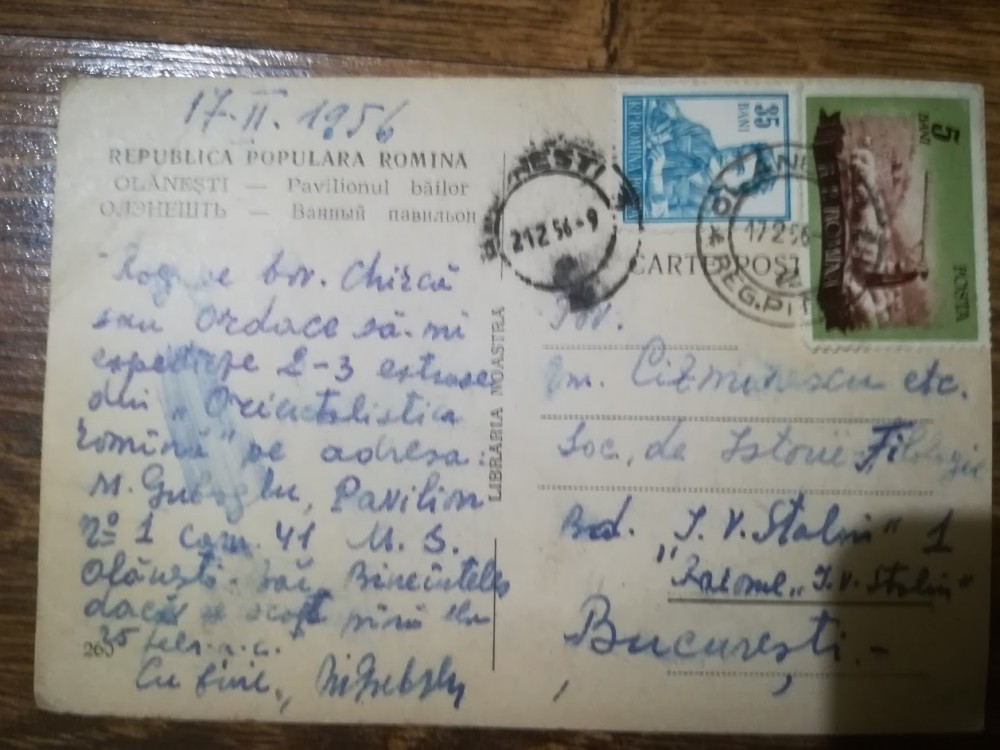 17-II. 1956
REPUBLICA POPULARA ROMINA
OLĂNEȘTI — Pavilionul băilor
ОЛЭНЕШТЬ — Ванный павильон
Rog pe tov. Chircă
sau Ordace să-mi
expedieze 2-3 extrase
din „Orientalistica
romînă" pe adresa:
M. Guboglu, Pavilion
nº 1 cam. 41 M. S.
Olănești-băi Bineînțeles
dacă pînă la
25 febr. a.c.
Cu bine, MGuboglu
265
LIBRARIA NOASTRA
NEȘTI
21 2 56-9
35 BANI
R.P.ROMINA
5 BANI
R.P. ROMINA
POSTA
OLANE
17 2 56
REG. PIT
CARTE POȘT
Tov.
Em. Cizmărescu etc.
Soc. de Istorie Filologie
Bd. „I. V. Stalin" 1
Raionul „I. V. Stalin"
București.-